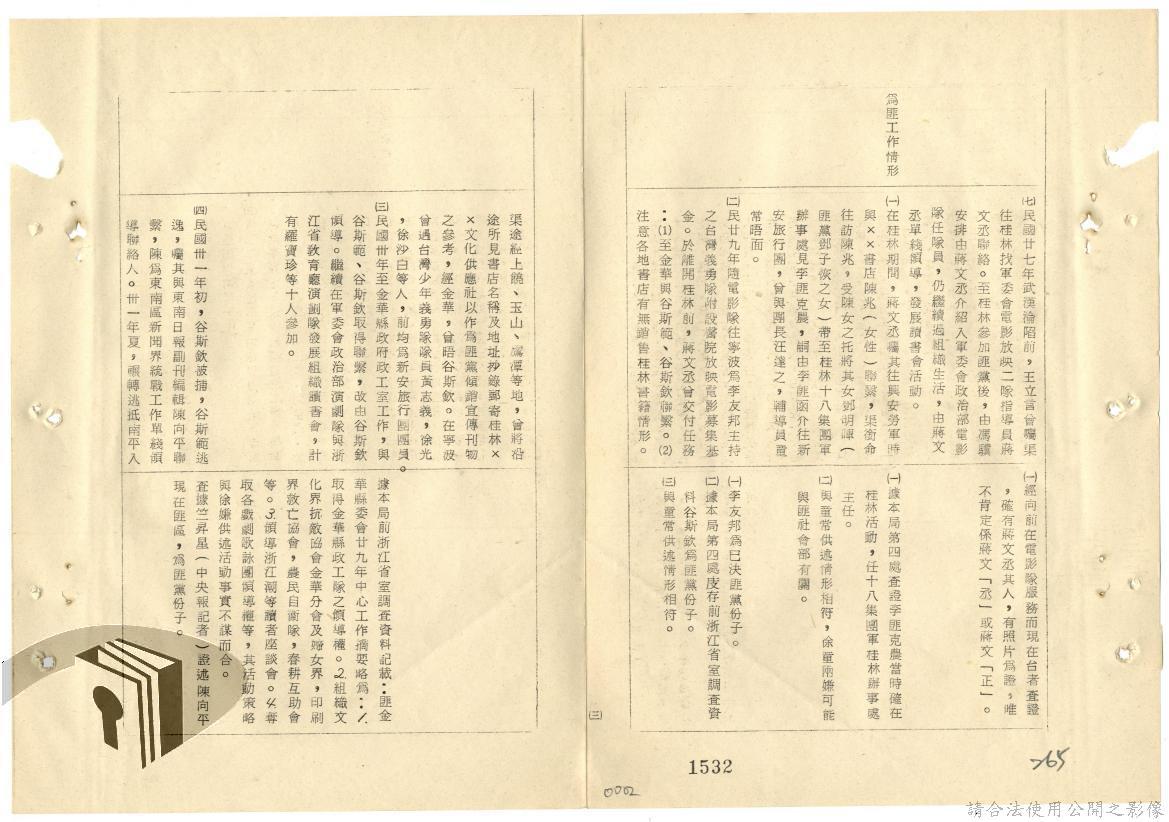 為匪工作情形
㈦民國廿七年武漢淪陷前，王立言曾囑渠
往桂林找軍委會電影放映二隊指導員蔣
文丞聯絡。至桂林參加匪黨後，由馮驥
安排由蔣文丞介紹入軍委會政治部電影
隊任隊員，仍繼續過組織生活，由蔣文
丞單綫領導，發展讀書會活動。
㈠在桂林期間，蔣文丞囑其往興安勞軍時
與××書店陳兆（女性）聯繫，渠銜命
往訪陳兆，受陳女之托將其女鄧明暉（
匪黨鄧子恢之女）帶至桂林十八集團軍
辦事處見李匪克農，嗣由李匪函介往新
安旅行團，曾與團長汪達之，輔導員童
常晤面。
㈡民廿九年隨電影隊往寧波為李友邦主持
之台灣義勇隊附設醫院放映電影募集基
金。於離開桂林前，蔣文丞曾交付任務
：⑴至金華與谷斯範、谷斯欽聯繫。⑵
注意各地書店有無銷售桂林書籍情形。
㈠經向前在電影隊服務而現在台者查證
，確有蔣文丞其人，有照片為證，唯
不肯定係蔣文「丞」或蔣文「正」。
㈠據本局第四處查證李匪克農當時確在
桂林活動，任十八集團軍桂林辦事處
主任。
㈡與童常供述情形相符，徐童兩嫌可能
與匪社會部有關。
㈠李友邦為已決匪黨份子。
㈡據本局第四處庋存前浙江省室調查資
料谷斯欽為匪黨份子。
㈢與童常供述情形相符。
㈢
1532
265
0002
渠途經上饒、玉山、鷹潭等地，曾將沿
途所見書店名稱及地址抄錄郵寄桂林×
×文化供應社以作為匪黨傾銷宣傳刊物
之參考，經金華，曾晤谷斯欽。在寧波
曾遇台灣少年義勇隊隊員黃志義，徐光
，徐沙白等人，前均為新安旅行團團員。
㈢民國卅年至金華縣政府政工室工作，與
谷斯範、谷斯欽取得聯繫，故由谷斯欽
領導。繼續在軍委會政治部演劇隊與浙
江省教育廳演劇隊發展組織讀書會，計
有羅寶珍等十人參加。
㈣民國卅一年初，谷斯欽被捕，谷斯範逃
逸，囑其與東南日報副刊編輯陳向平聯
繫，陳為東南區新聞界統戰工作單綫領
導聯絡人。卅一年夏，輾轉逃抵南平入
據本局前浙江省室調查資料記載：匪金
華縣委會廿九年中心工作摘要略為：1.
取得金華縣政工隊之領導權。2.組織文
化界抗敵協會金華分會及婦女界，印刷
界救亡協會，農民自衛隊，春耕互助會
等。3.領導浙江潮等讀者座談會。4.奪
取各戲劇歌詠團領導權等，其活動策略
與徐嫌供述活動事實不謀而合。
查據竺昇星（中央報記者）證述陳向平
現在匪區，為匪黨份子。
請合法使用公開之影像